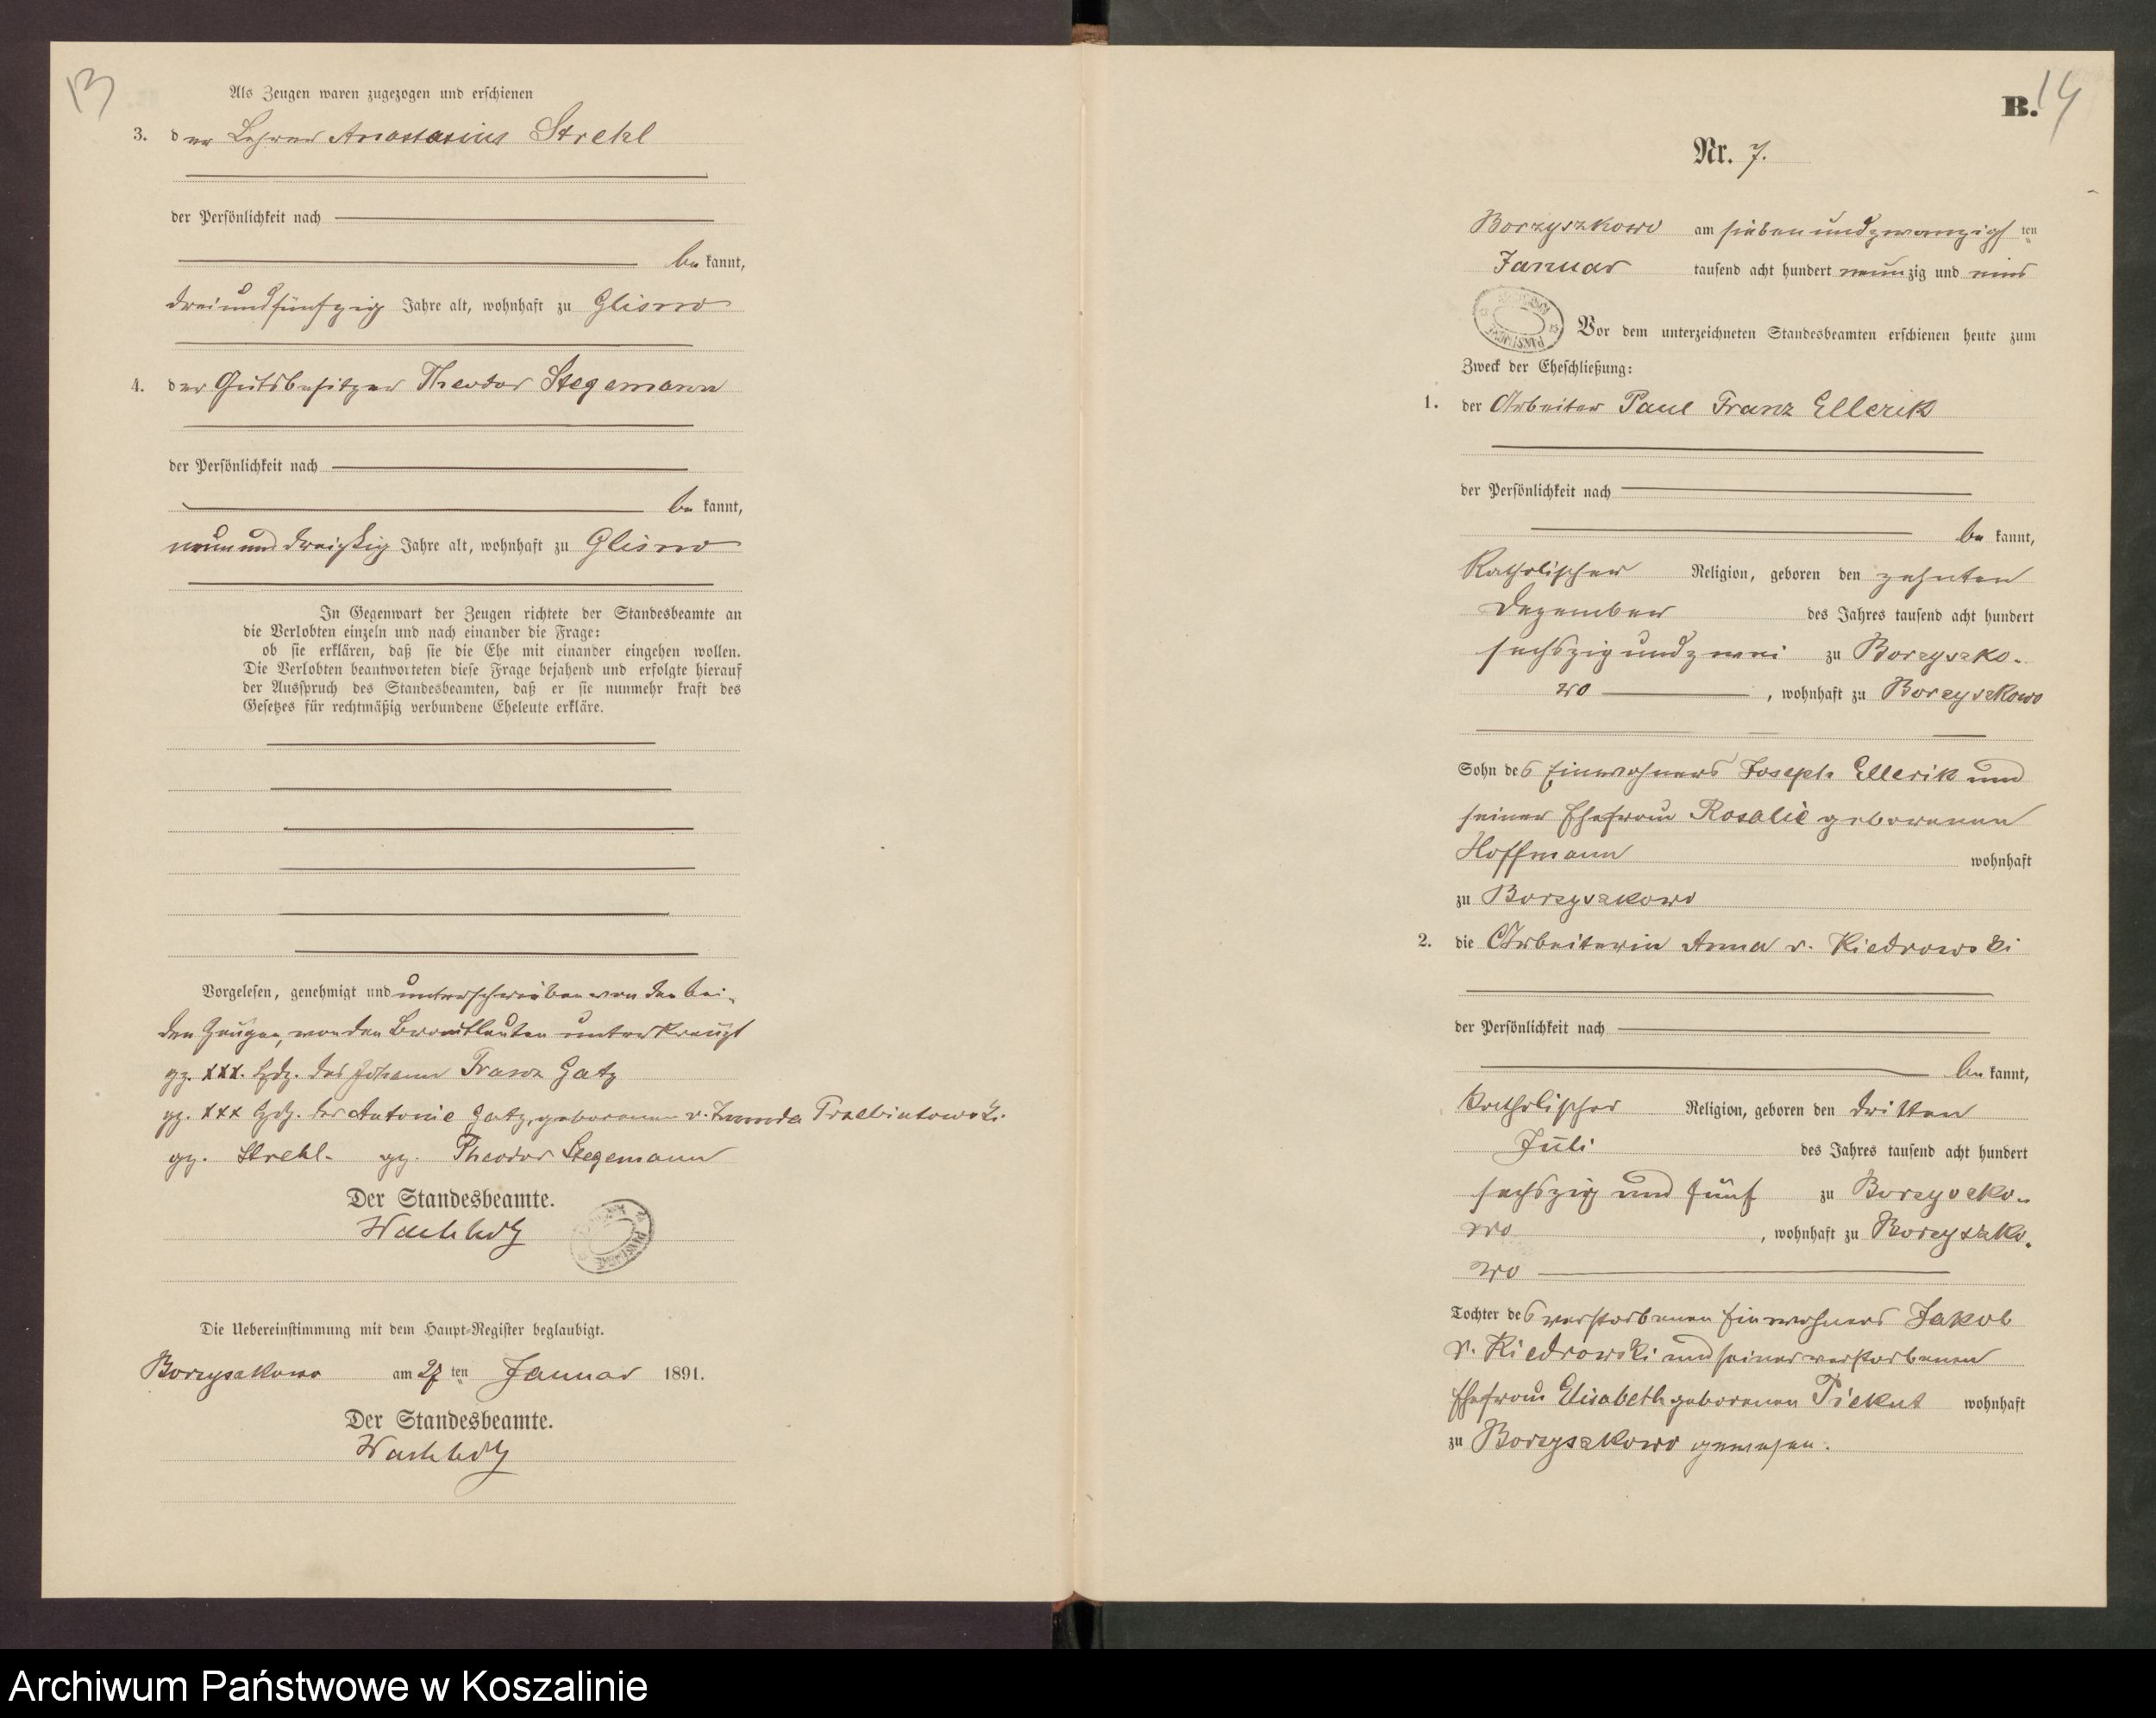 13
Als Zeugen waren zugezogen und erschienen
3. der Lehrer Anastasius Strehl
der Persönlichkeit nach
be kannt,
dreiundfünfzig Jahre alt, wohnhaft zu Glisno
4. der Gutsbesitzer Theodor Stegemann
der Persönlichkeit nach
be kannt,
neununddreißig Jahre alt, wohnhaft zu Glisno
In Gegenwart der Zeugen richtete der Standesbeamte an
die Verlobten einzeln und nach einander die Frage:
ob sie erklären, daß sie die Ehe mit einander eingehen wollen.
Die Verlobten beantworteten diese Frage bejahend und erfolgte hierauf
der Ausspruch des Standesbeamten, daß er sie nunmehr kraft des
Gesetzes für rechtmäßig verbundene Eheleute erkläre.
Vorgelesen, genehmigt und unterschrieben von den bei-
den Zeugen, von den Brautleuten unterkreuzt
gz. XXX. Hdz. des Johann Franz Gatz
gz. XXX Hdz. der Antonie Gatz, geborenen v.
gz. Strehl. gz. Theodor Stegemann
Der Standesbeamte.
Die Uebereinstimmung mit dem Haupt-Register beglaubigt.
Borzyszkowo am 27 ten Januar 1891.
Der Standesbeamte.
B. 14
Nr. 7.
Borzyszkowo am siebenundzwanzigs ten
Januar tausend acht hundert neunzig und eins
Vor dem unterzeichneten Standesbeamten erschienen heute zum
Zweck der Eheschließung:
1. der Arbeiter Paul Franz Ellerik
der Persönlichkeit nach
be kannt,
Katholischer Religion, geboren den zehnten
Dezember des Jahres tausend acht hundert
sechszig und zwei zu Borzyszko-
wo, wohnhaft zu Borzyszkowo
Sohn des Einwohners Joseph Ellerik und
seiner Ehefrau Rosalie geborenen
Hoffmann wohnhaft
zu Borzyszkowo
2. die Arbeiterin Anna v. Kiedrowski
der Persönlichkeit nach
be kannt,
Katholischer Religion, geboren den dritten
Juli des Jahres tausend acht hundert
sechszig und fünf zu Borzyszko-
wo, wohnhaft zu Borzyszko-
wo
Tochter des verstorbenen Einwohners Jakob
v. Kiedrowski und seiner verstorbenen
Ehefrau Elisabeth geborenen Piekut wohnhaft
zu Borzyszkowo gewesen.
Archiwum Państwowe w Koszalinie